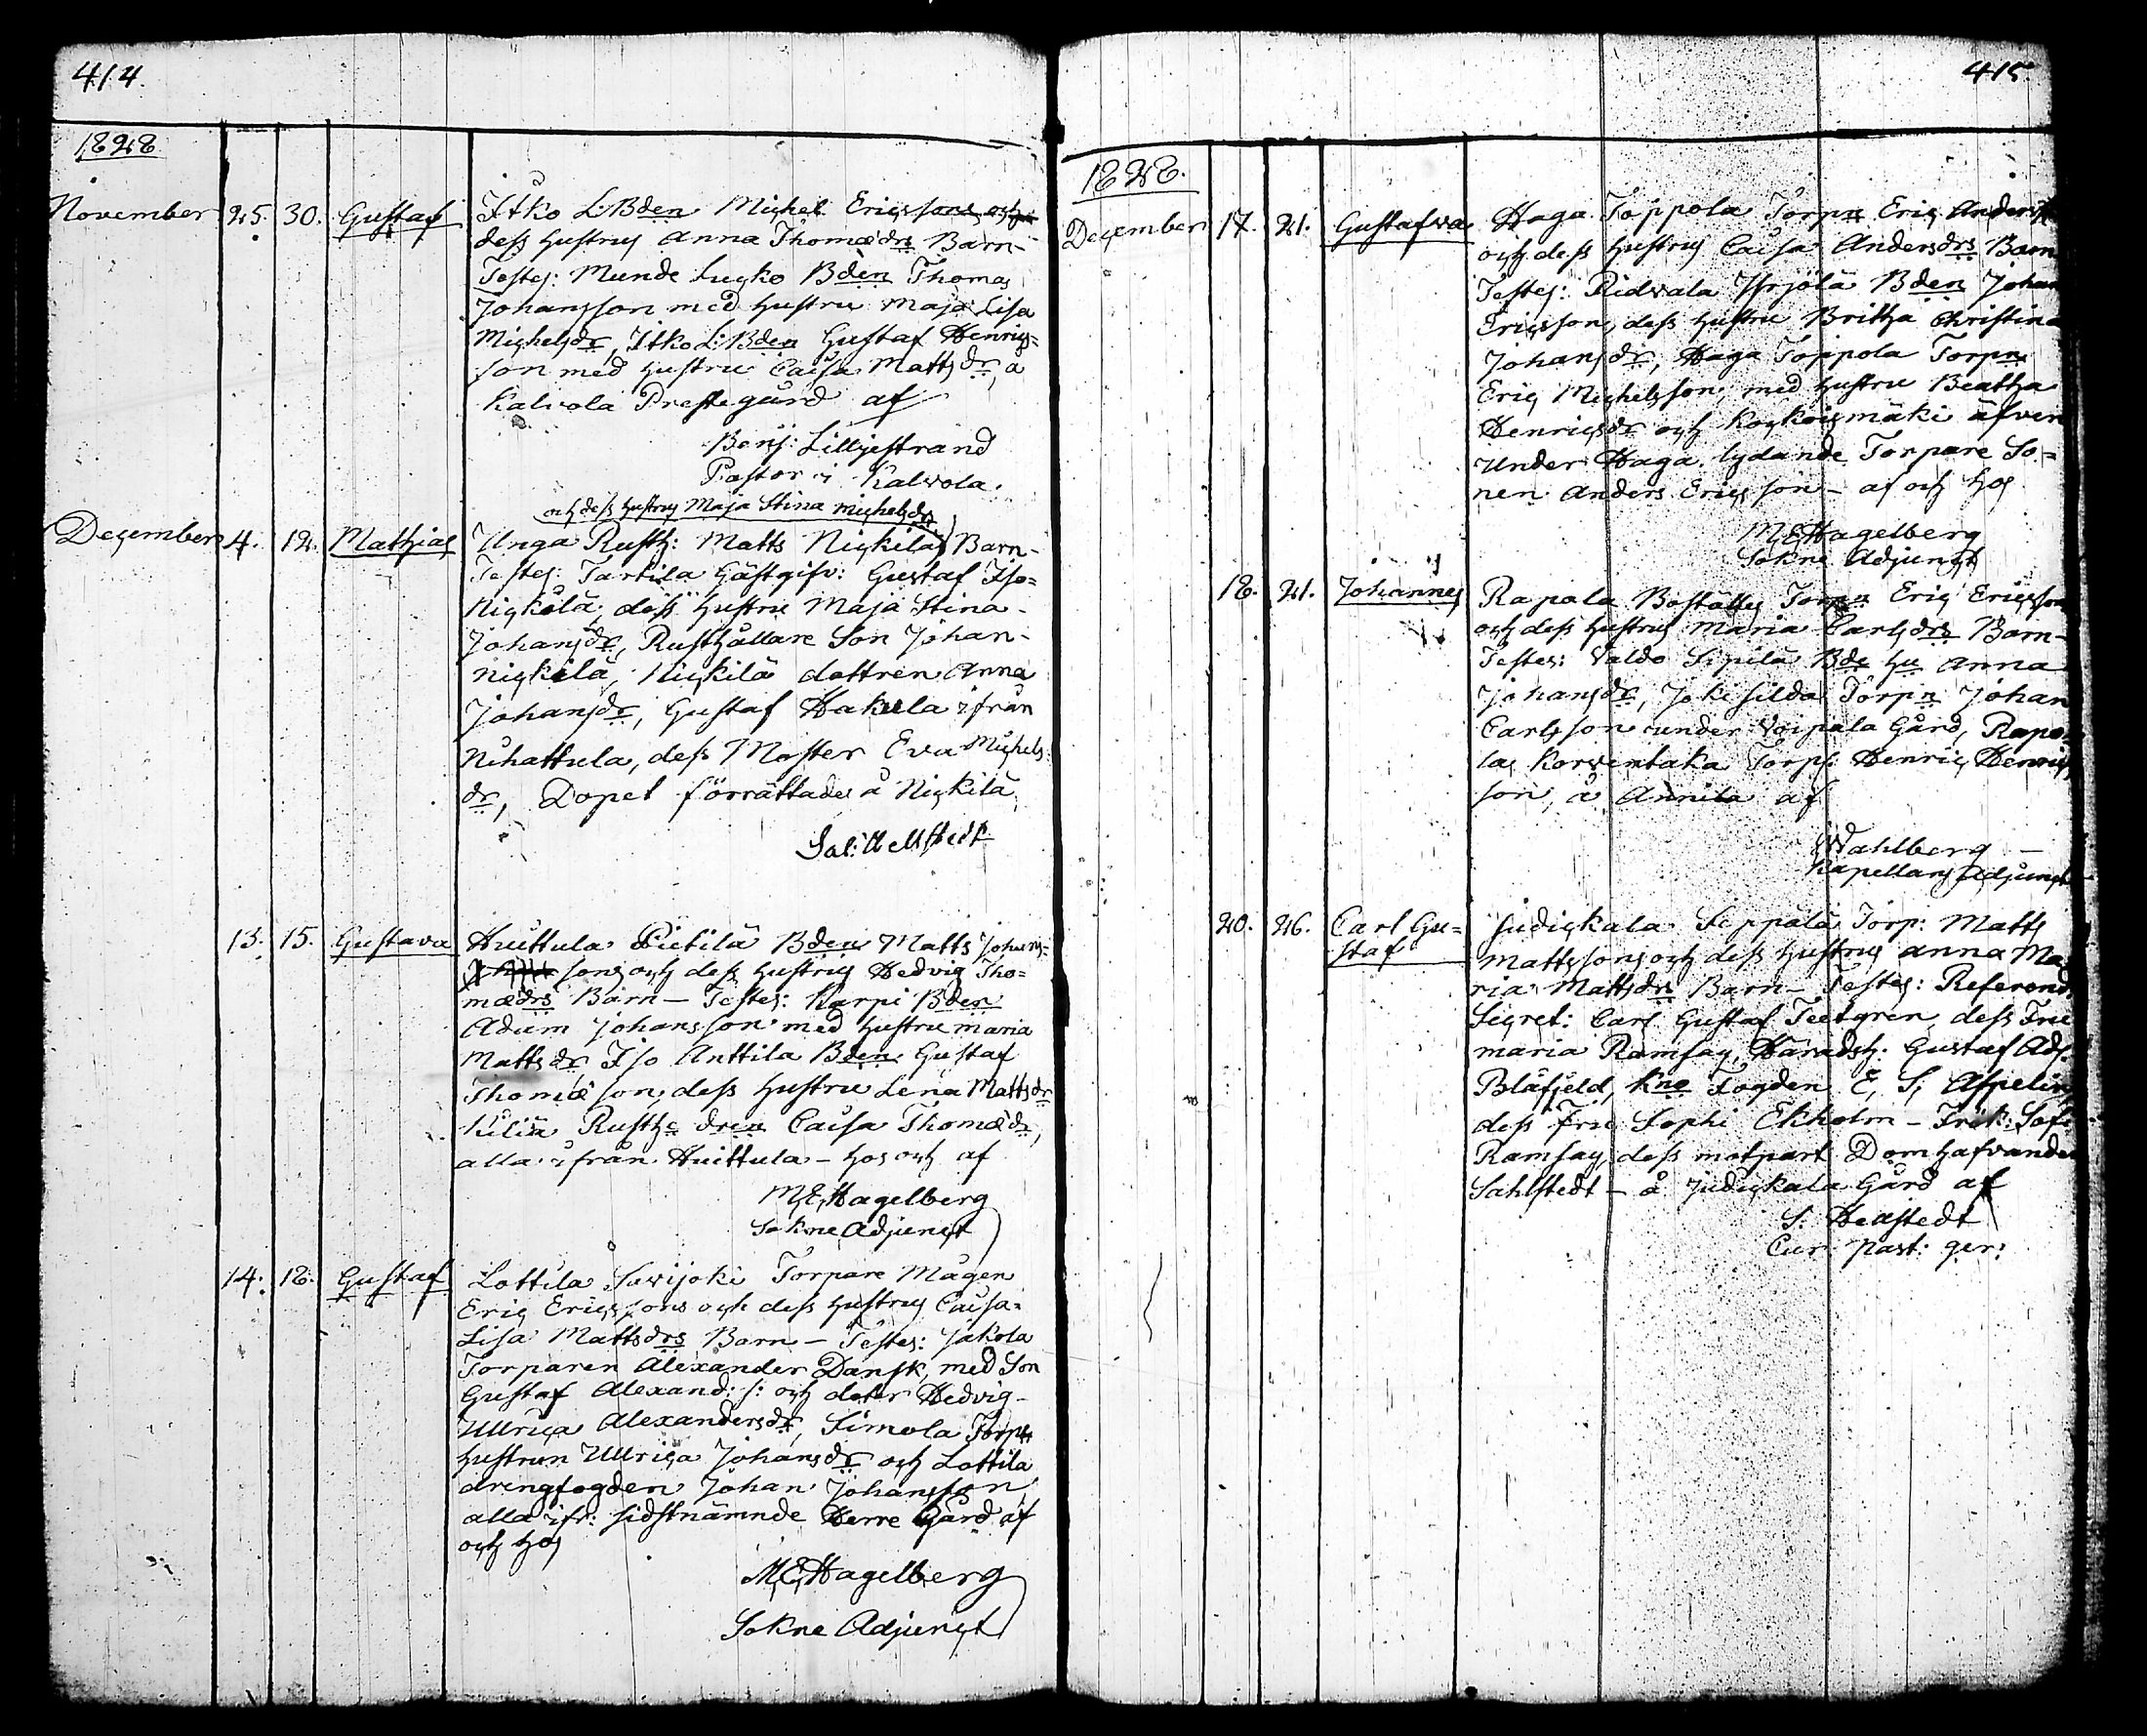 414.
1828
November 25. 30. Gustaf Itko L. Bden Michel Ericssons och
dess hustrus Anna Thomædrs Barn-
Testes: Munde Lucko Bden Thomas
Johansson med hustru Maja Lisa
Michelsdr, Itko L: Bden Gustaf Henrics=
son med hustru Caisa Mattsdr, å
Kalvola Prestegård af
Benj: Lilljestrand
Pastor i Kalvola.
och dess hustrus Maja Stina Michelsdrs
December 4. 12. Mathias Unga Rusth: Matts Nickilas Barn-
Testes: Tarkila Gästgifv: Gustaf Iso=
Nickilä, dess hustru Maja Stina
Johansdr, Rusthållare Son Johan
Nickilä, Nickilä dottren Anna
Johansdr, Gustaf Hakula ifrån
Nihattula, dess Moster Eva Michels
dr, Dopet förrättades å Nickilä
Sal: Hellstedt
13. 15. Gustava Huittula Pietilä Bden Matts Johans-
sons och dess hustrus Hedvig Tho=
mædrs Barn — Testes: Karpi Bden
Adam Johansson med hustru Maria
Mattsdr Iso Anttila Bden Gustaf
Thomæson, dess hustru Lena Mattsdr
Kiliä Rusth: dren Caisa Thomædr,
alla ifrån Huittula — hos och af
M E Hagelberg
Sokne Adjunct
14. 18. Gustaf Lottila Savijoki Torpare Mågen
Eric Ericssons och dess hustrus Caisa
Lisa Mattsdrs Barn — Testes: Jakola
Torparen Alexander Dansk, med Son
Gustaf Alexand: s: och doter Hedvig
Ullrica Alexandersdr, Simola Torp
hustrun Ullrica Johansdr och Lottila
drengfogden Johan Johansson
alla ifr: sidstnämnde Herre Gård af
och hos
M E Hagelberg
Sokne Adjunct
415.
1828.
December 17. 21. Gustafva Haga Toppola Torpn Eric Anders
och dess hustrus Caisa Andersdrs Barn
Testes: Ridvala Yrjölä Bden Johan
Ericsson, dess hustru Britha Christina
Johansdr, Haga Toppola Torpn
Eric Michelsson, med hustru Beatha
Henricsdr och Kockoismäki äfven
under Haga lydande Torpare So=
nen Anders Ericsson — af och hos
M E Hagelberg
Sokne Adjunct
18. 21. Johannes Rapola Boställes Torpn Eric Ericsson
och dess hustrus Maria Carlsdrs Barn-
Testes: Valdo Sipilä Bde hu Anna
Johansdr, Jokisilda Torpn Johan
Carlsson under Voipala Gård, Rapo
las Korventaka Torp: Henric Henrics
son, å Annila af
Wahlberg —
Kapellans Adjunct
20. 26. Carl Gu=
staf
Judickala Seppälä Torp: Matts
Mattssons och dess hustrus Anna Ma
ria Mattsdrs Barn — Testes: Referend
Secret: Carl Gustaf Teetgren, dess Fru
Maria Ramsay, Häradsh: Gustaf Adf
Blåfjeld, Kno Fogden E. S. Aspelin,
dess Fru Sophi Ekholm — Frök: Sofi
Ramsay, dess motpart Domhafvande
Sahlstedt — å Judickala Gård af
S. Hellstedt
Cur: past: ger: